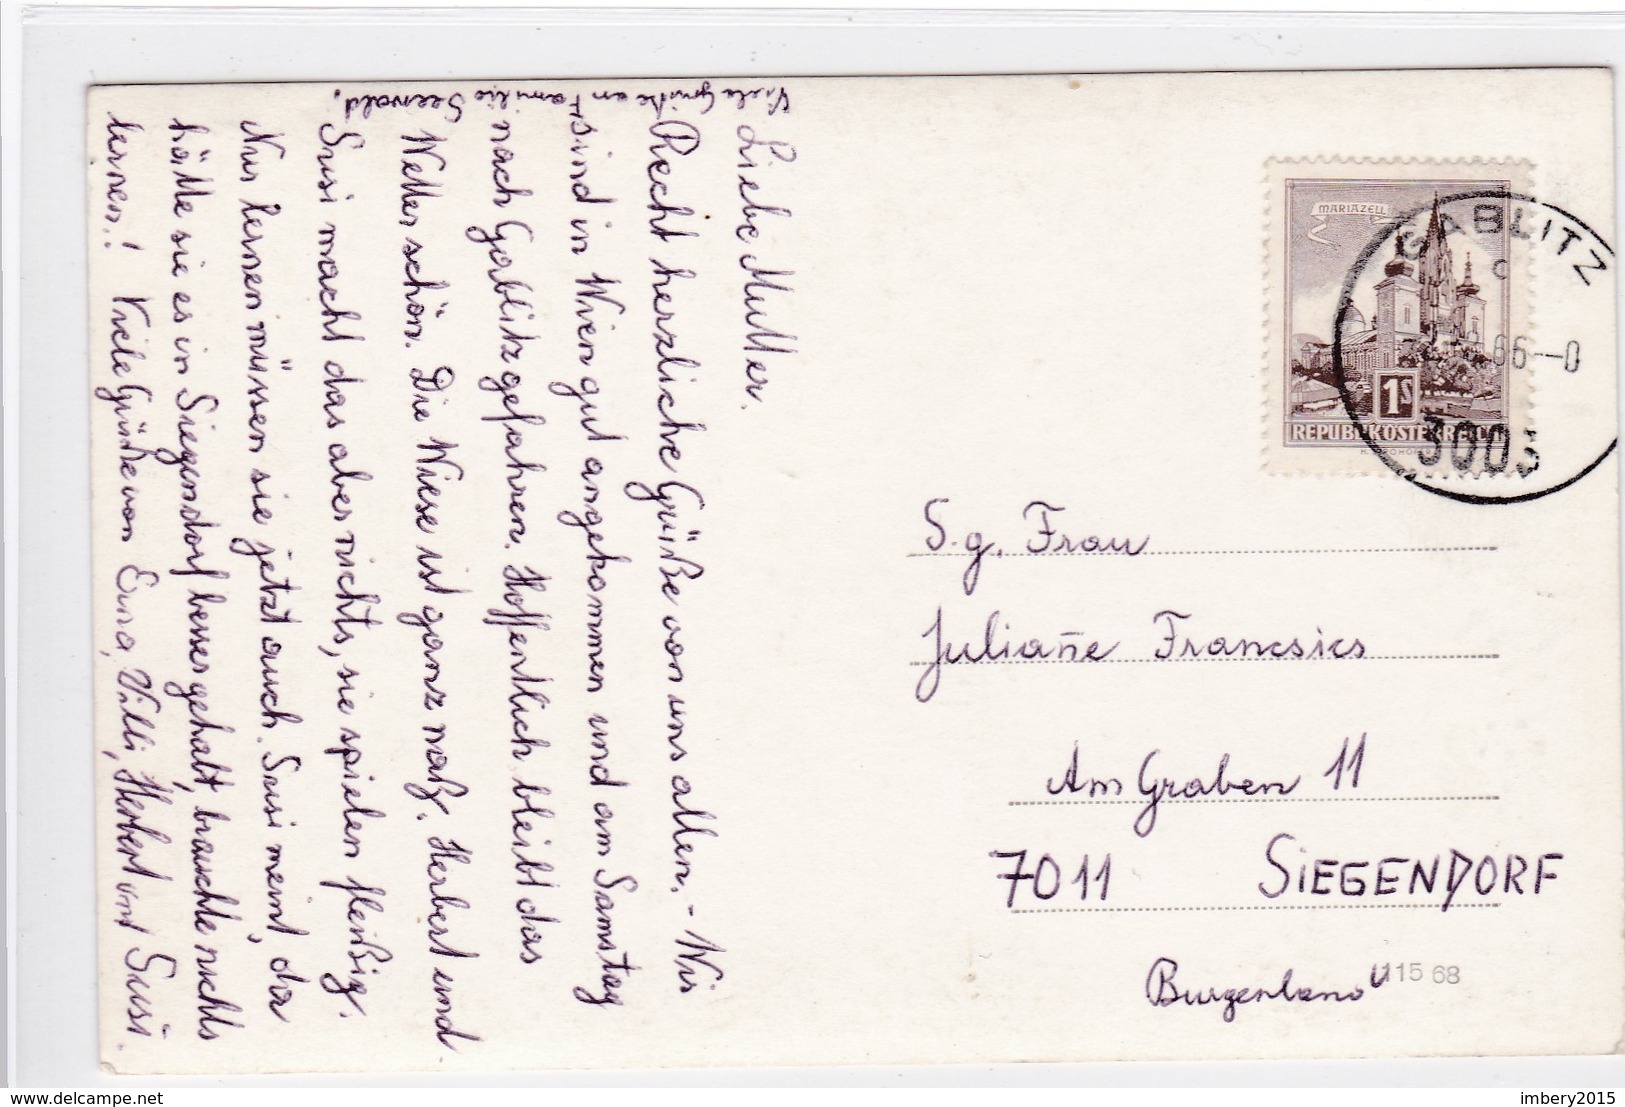 Viele Grüße an Familie Seewald.
Liebe Mutter.
Recht herzliche Grüße von uns allen. - Wir
sind in Wien gut angekommen und am Samstag
nach Gablitz gefahren. Hoffentlich bleibt das
Wetter schön. Die Wiese ist ganz naß. Herbert und
Susi macht das aber nichts, sie spielen fleißig.
Nur lernen müssen sie jetzt auch. Susi meint, da
hätte sie es in Siegendorf besser gehabt, brauchte nichts
lernen! Viele Grüße von Erna, Villi, Herbert und Susi.
MARIAZELL
1S
REPUBLIK ÖSTERREICH
GABLITZ
c
66--0
3003
S.g. Frau
Juliane Francsics
Am Graben 11
7011 SIEGENDORF
Burgenland
115 68
www.delcampe.net
imbery2015